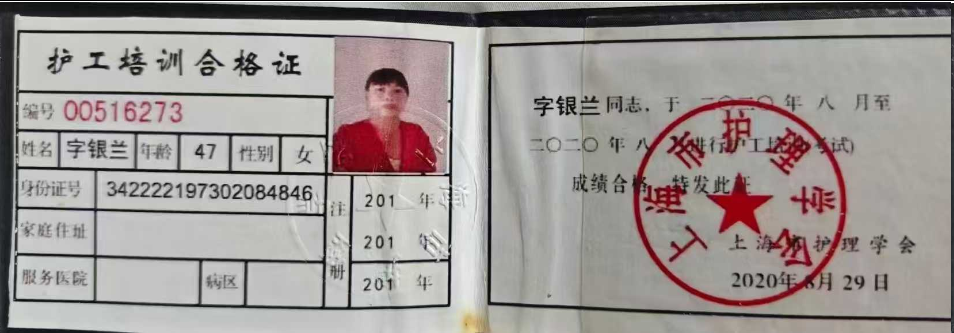 护工培训合格证
编号 00516273
姓名 字银兰 年龄 47 性别 女
身份证号 342222197302084846
家庭住址
服务医院 病区
注册
201 年
201 年
201 年
字银兰同志,于 二〇二〇 年 八 月至
二〇二〇 年 八 进行护工 考试)
成绩合格 特发此证
上海市护理学会
2020年 8月 29 日
上海市护理学会